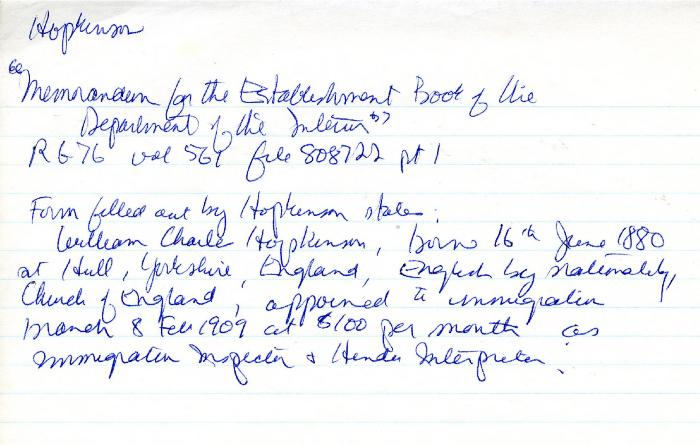 Hopkinson
"Memorandum for the Establishment Book of the
Department of the Interior"
RG 76 vol 561 file 808722 pt 1
Form filled out by Hopkinson states:
William Charles Hopkinson, born 16th June 1880
at Hull, Yorkshire, England, English by nationality,
Church of England, appoined to immigration
branch 8 Feb 1909 at $100 per month as
immigration inspector & Hindu Interpreter.